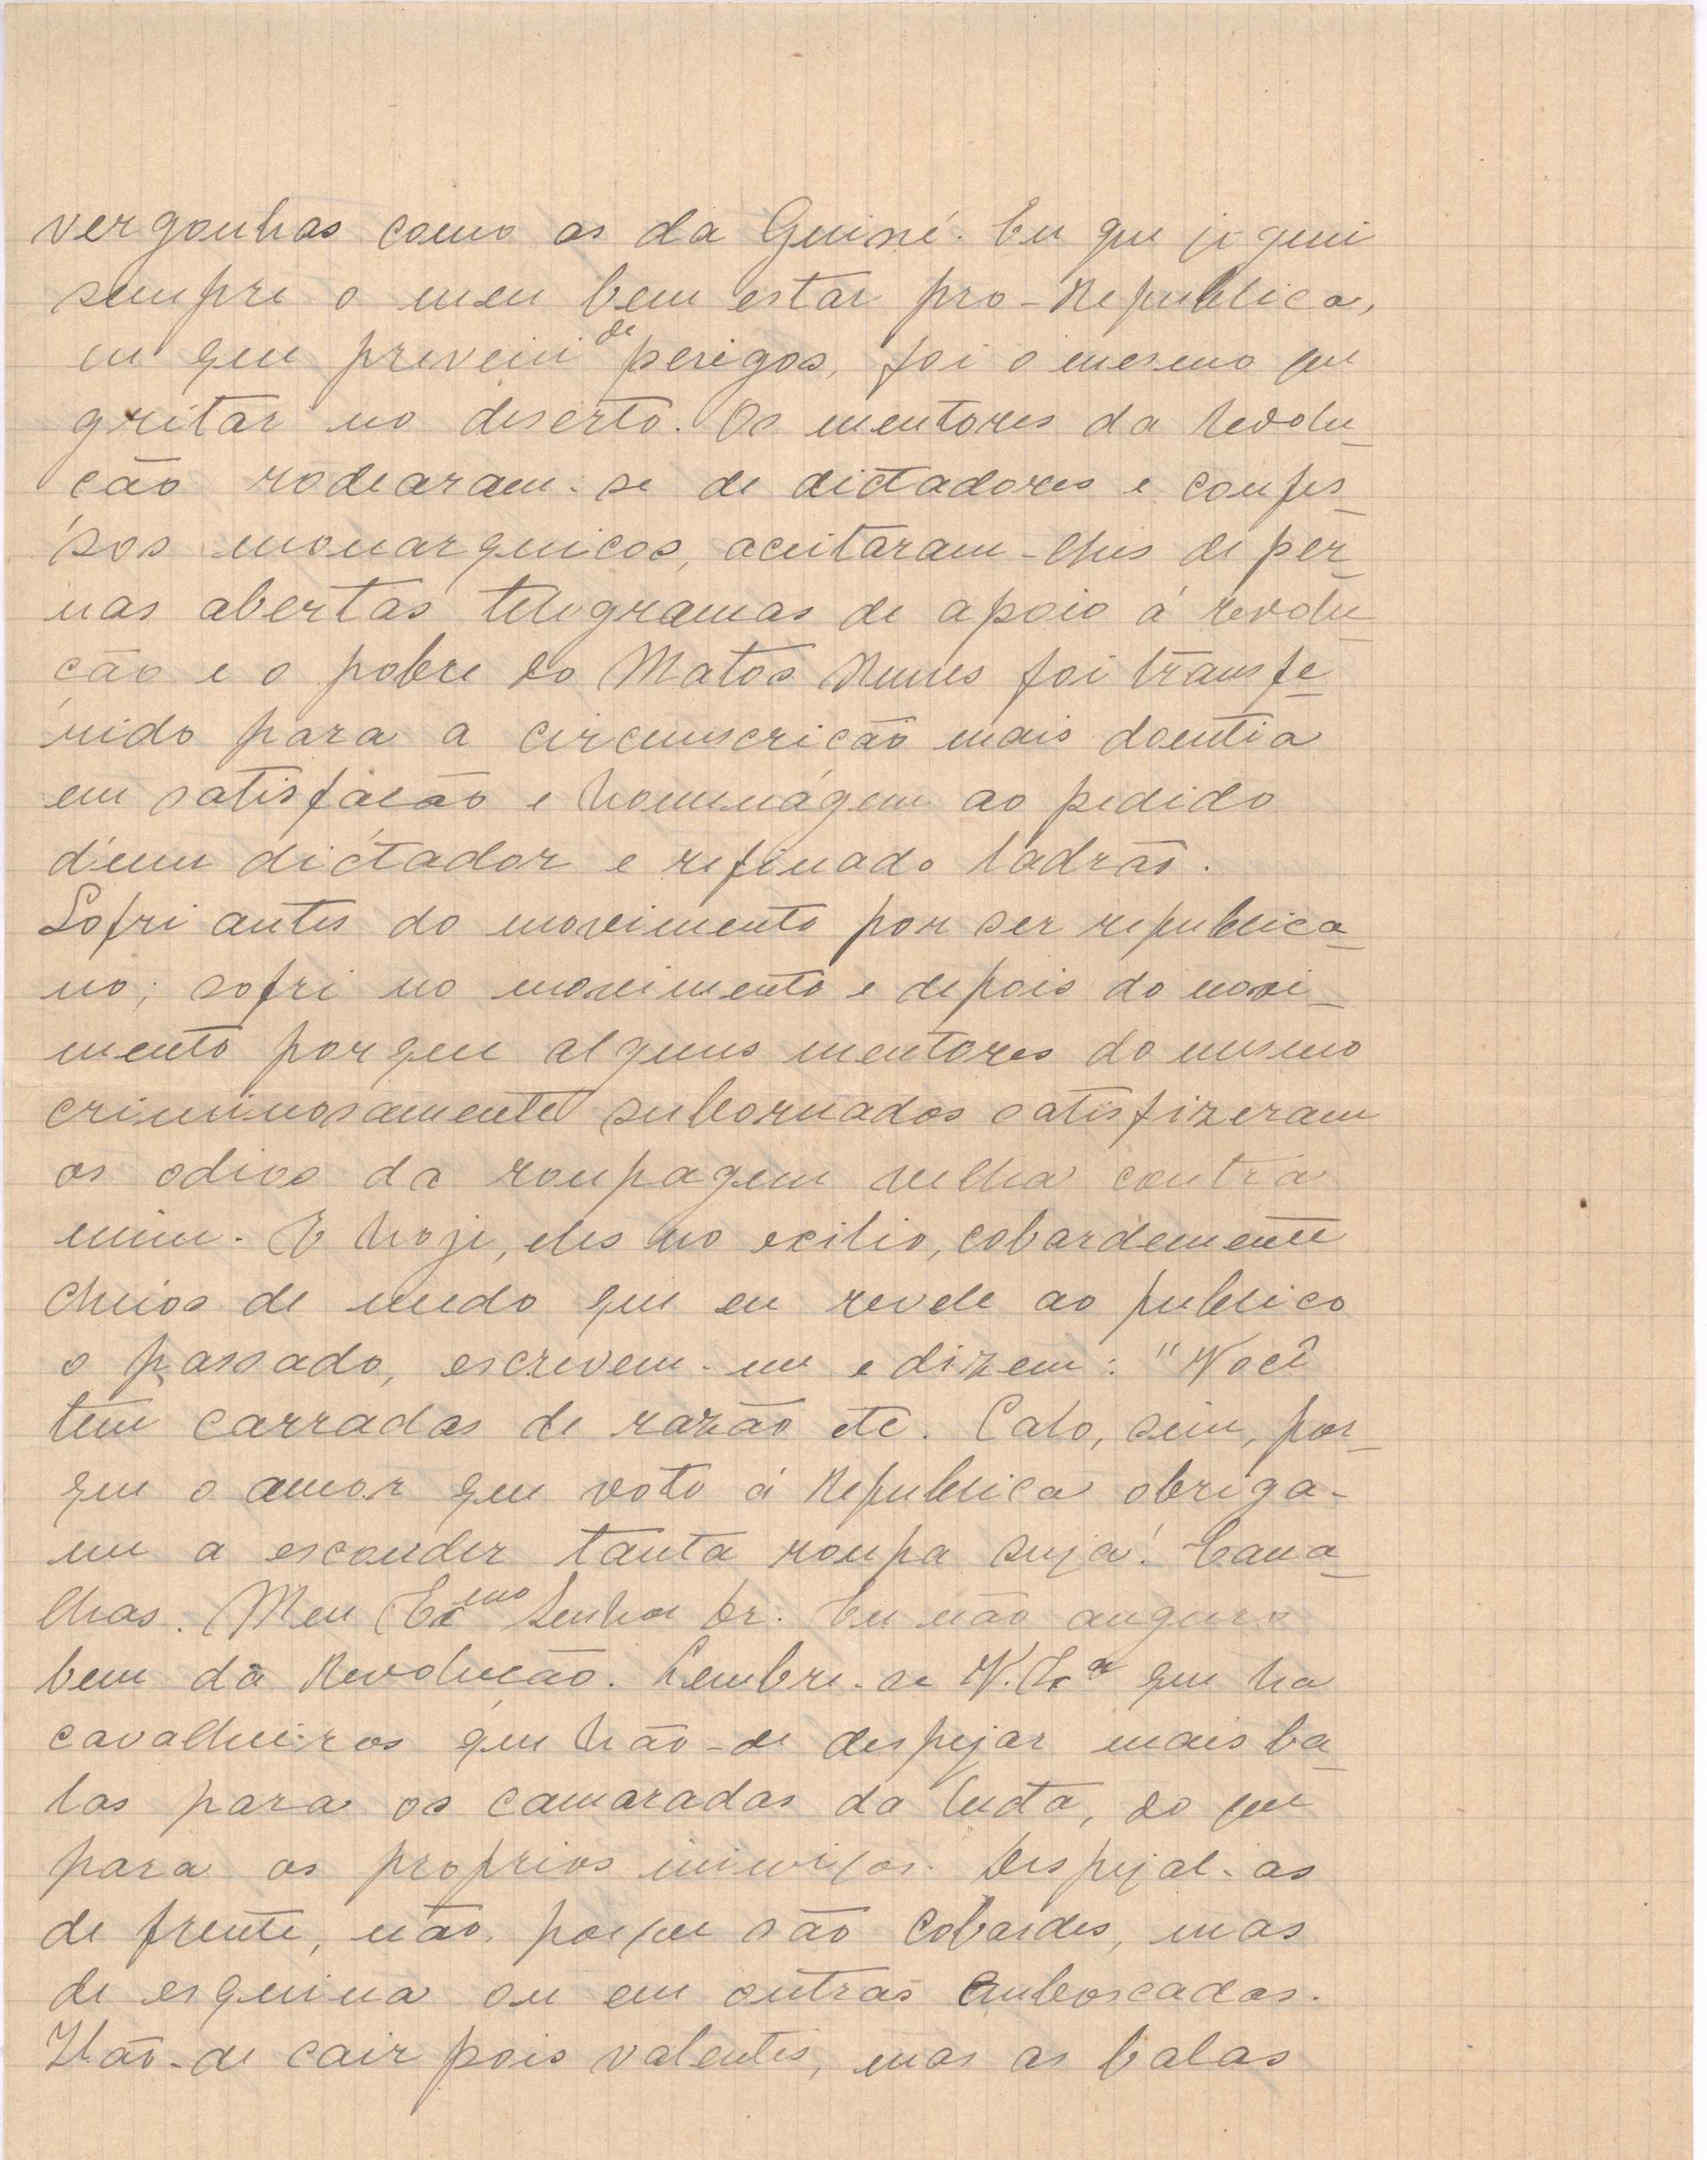 vergonhas como as da Guiné. Eu que joguei
sempre o meu bem estar pro-Republica,
eu que preveni de perigos, foi o mesmo que
gritar no deserto. Os mentores da Revolu-
cão rodearam-se de dictadores e confes-
sos monarquicos, aceitaram-lhes de per-
nas abertas telegramas de apoio á revolu-
cão e o pobre do Matos Nunes foi transfe-
rido para a circunscricão mais doentia
em satisfacão e homenágem ao pedido
d'um dictador e refinado ladrão.
Sofri antes do movimento por ser republica-
no; sofri no movimento e depois do movi-
mento porque alguns mentores do mesmo
criminosamente subornados satisfizeram
os odios da roupagem velha contra
mim. E hoje, eles no exilio, cobardemente
cheios de medo que eu revele ao publico
o passado, escrevem-me e dizem: "Você
tem carradas de razão etc. Calo, sim, por-
que o amor que voto á Republica obriga-
me a esconder tanta roupa suja! Cana-
lhas. Meu Exmo Senhor Dr. Eu não auguro
bem da Revolucão. Lembre-se V. Exa que ha
cavalheiros que hão-de despejar mais ba-
las para os camaradas da luta, do que
para os proprios inimigos. Despejal-as
de frente, não, porque são cobardes, mas
de esquina ou em outras emboscadas.
Hão-de cair pois valentes, mas as balas